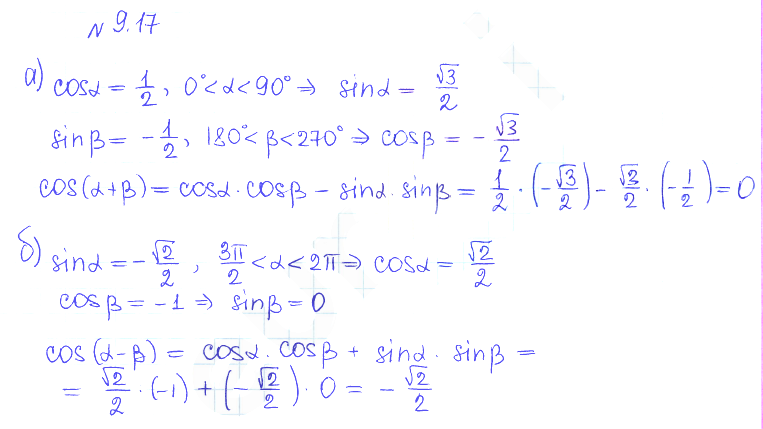 № 9.17
а) cosα = 1/2, 0°<α<90° ⇒ sinα = √3/2
sinβ = -1/2, 180°<β<270° ⇒ cosβ = -√3/2
cos(α+β) = cosα·cosβ - sinα·sinβ = 1/2·(-√3/2) - √3/2·(-1/2) = 0
б) sinα = -√2/2, 3π/2<α<2π ⇒ cosα = √2/2
cosβ = -1 ⇒ sinβ = 0
cos(α-β) = cosα·cosβ + sinα·sinβ =
= √2/2·(-1) + (-√2/2)·0 = -√2/2